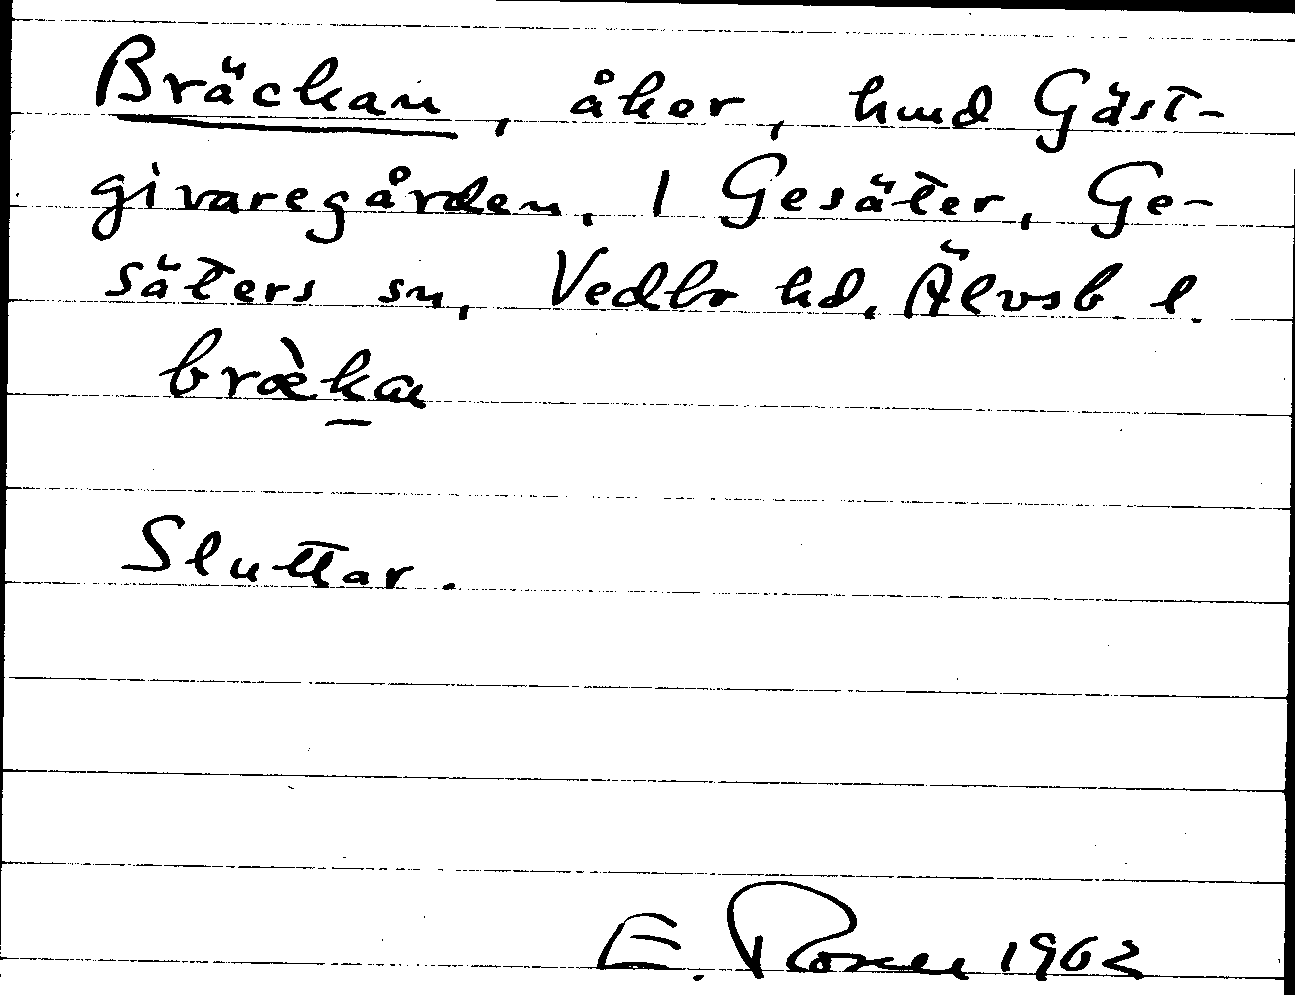 Bräckan, åker, hmd Gäst-
givaregården, 1 Gesäter, Ge-
säters sn, Vedbo hd, Älvsb l.
bræ̀kan
Sluttar.
E. 1962